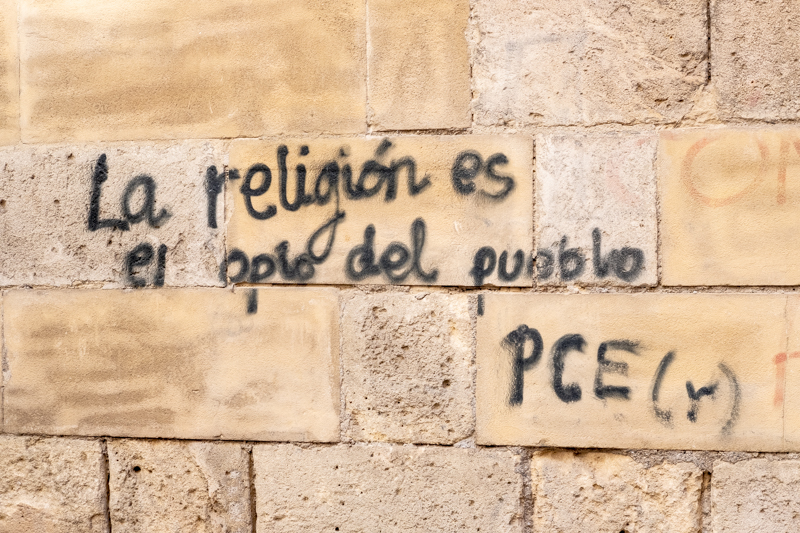 La religión es
el opio del pueblo
PCE (r)